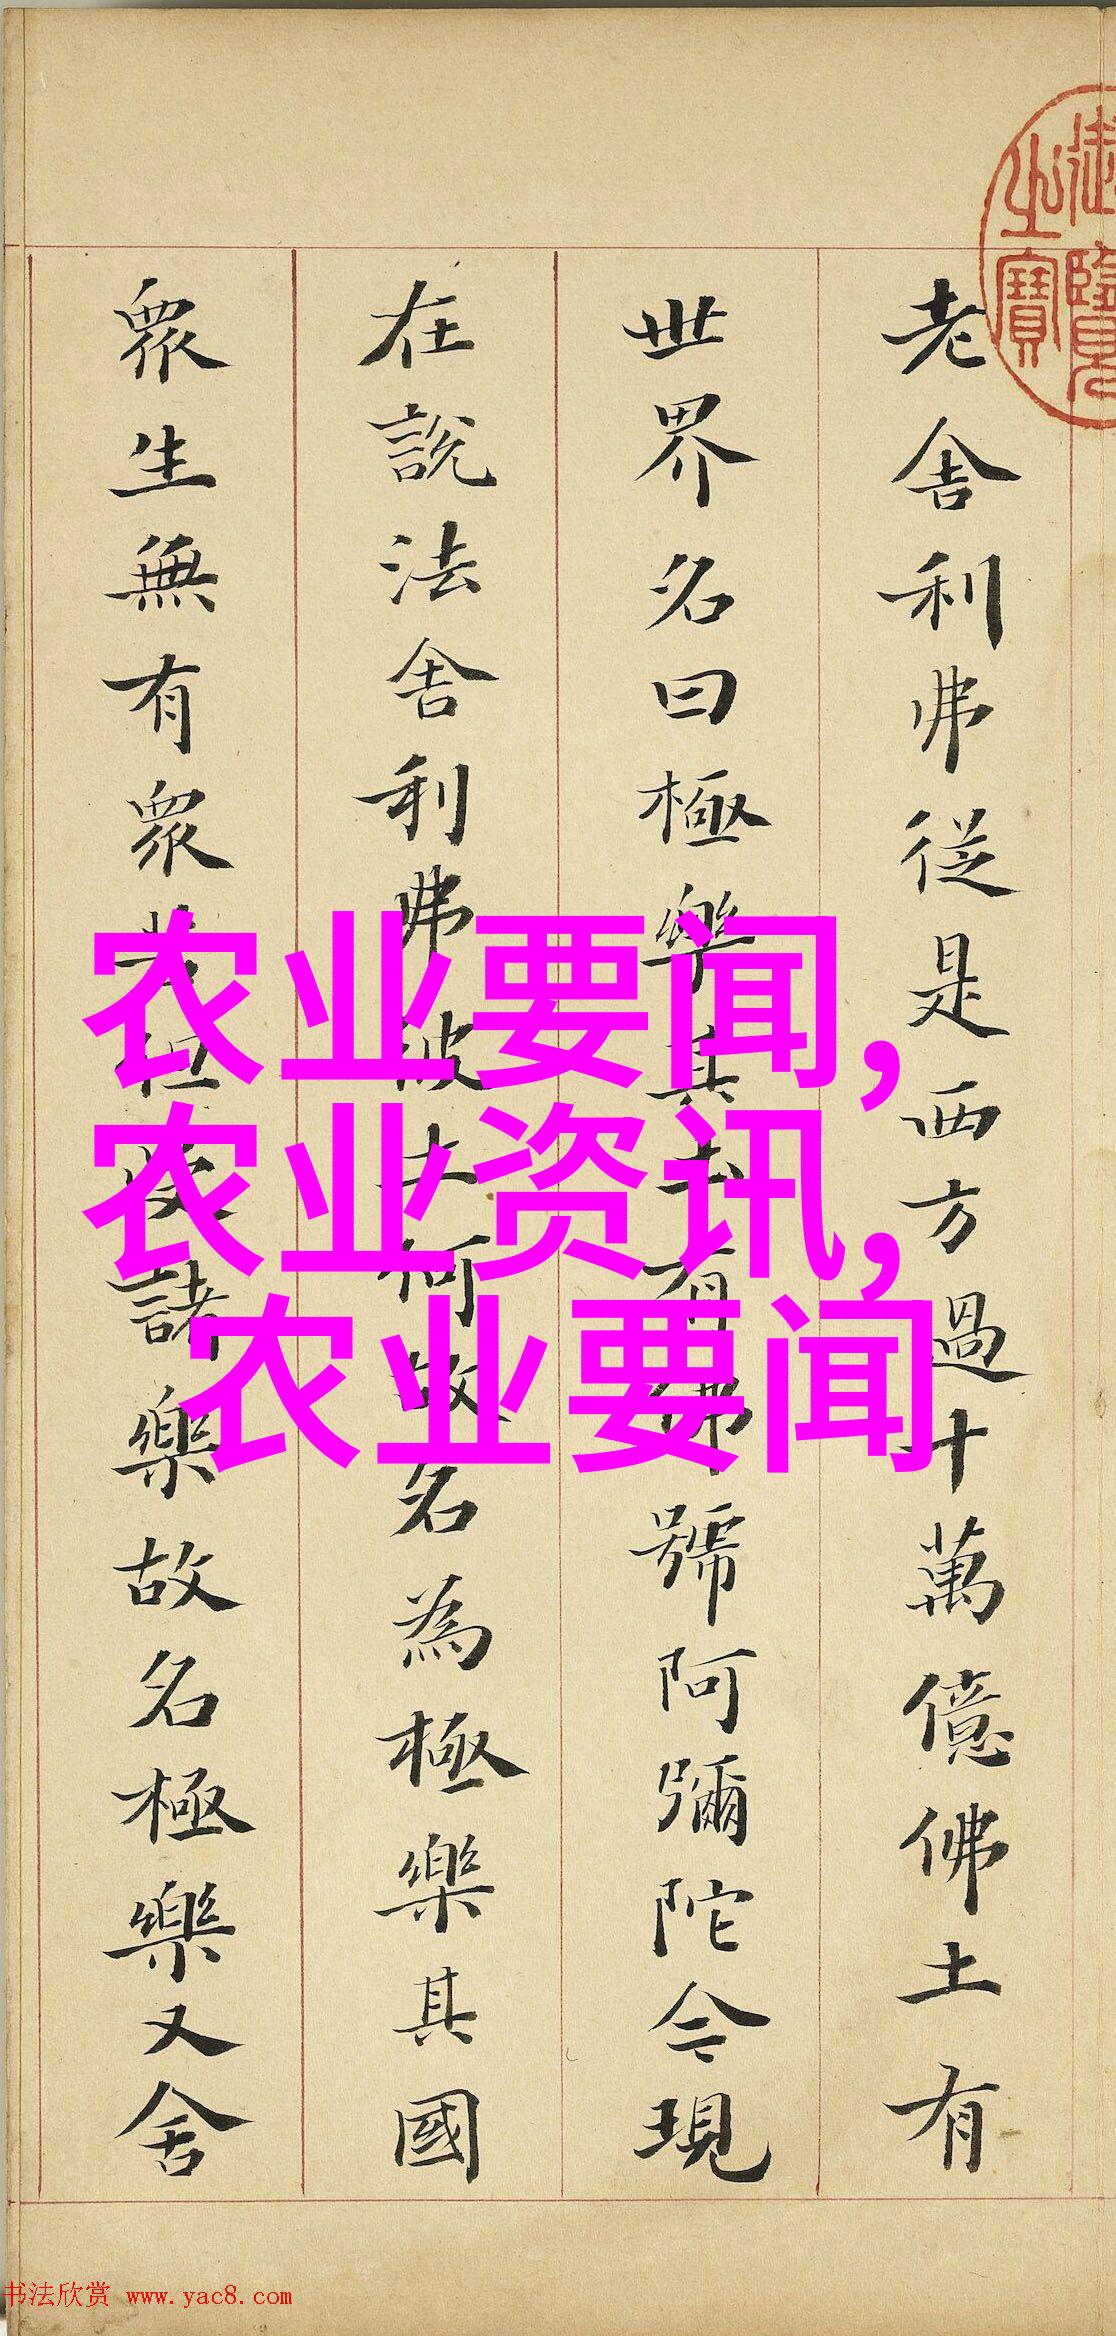 御覽
之寶
老舍利弗從是西方過十萬億佛土有
世界名曰極樂其土有佛號阿彌陀今現
在說法舍利弗彼土何故名為極樂其國
眾生無有眾苦但受諸樂故名極樂又舍
农业要闻,
农业资讯,
农业要闻
书法欣赏 www.yac8.com